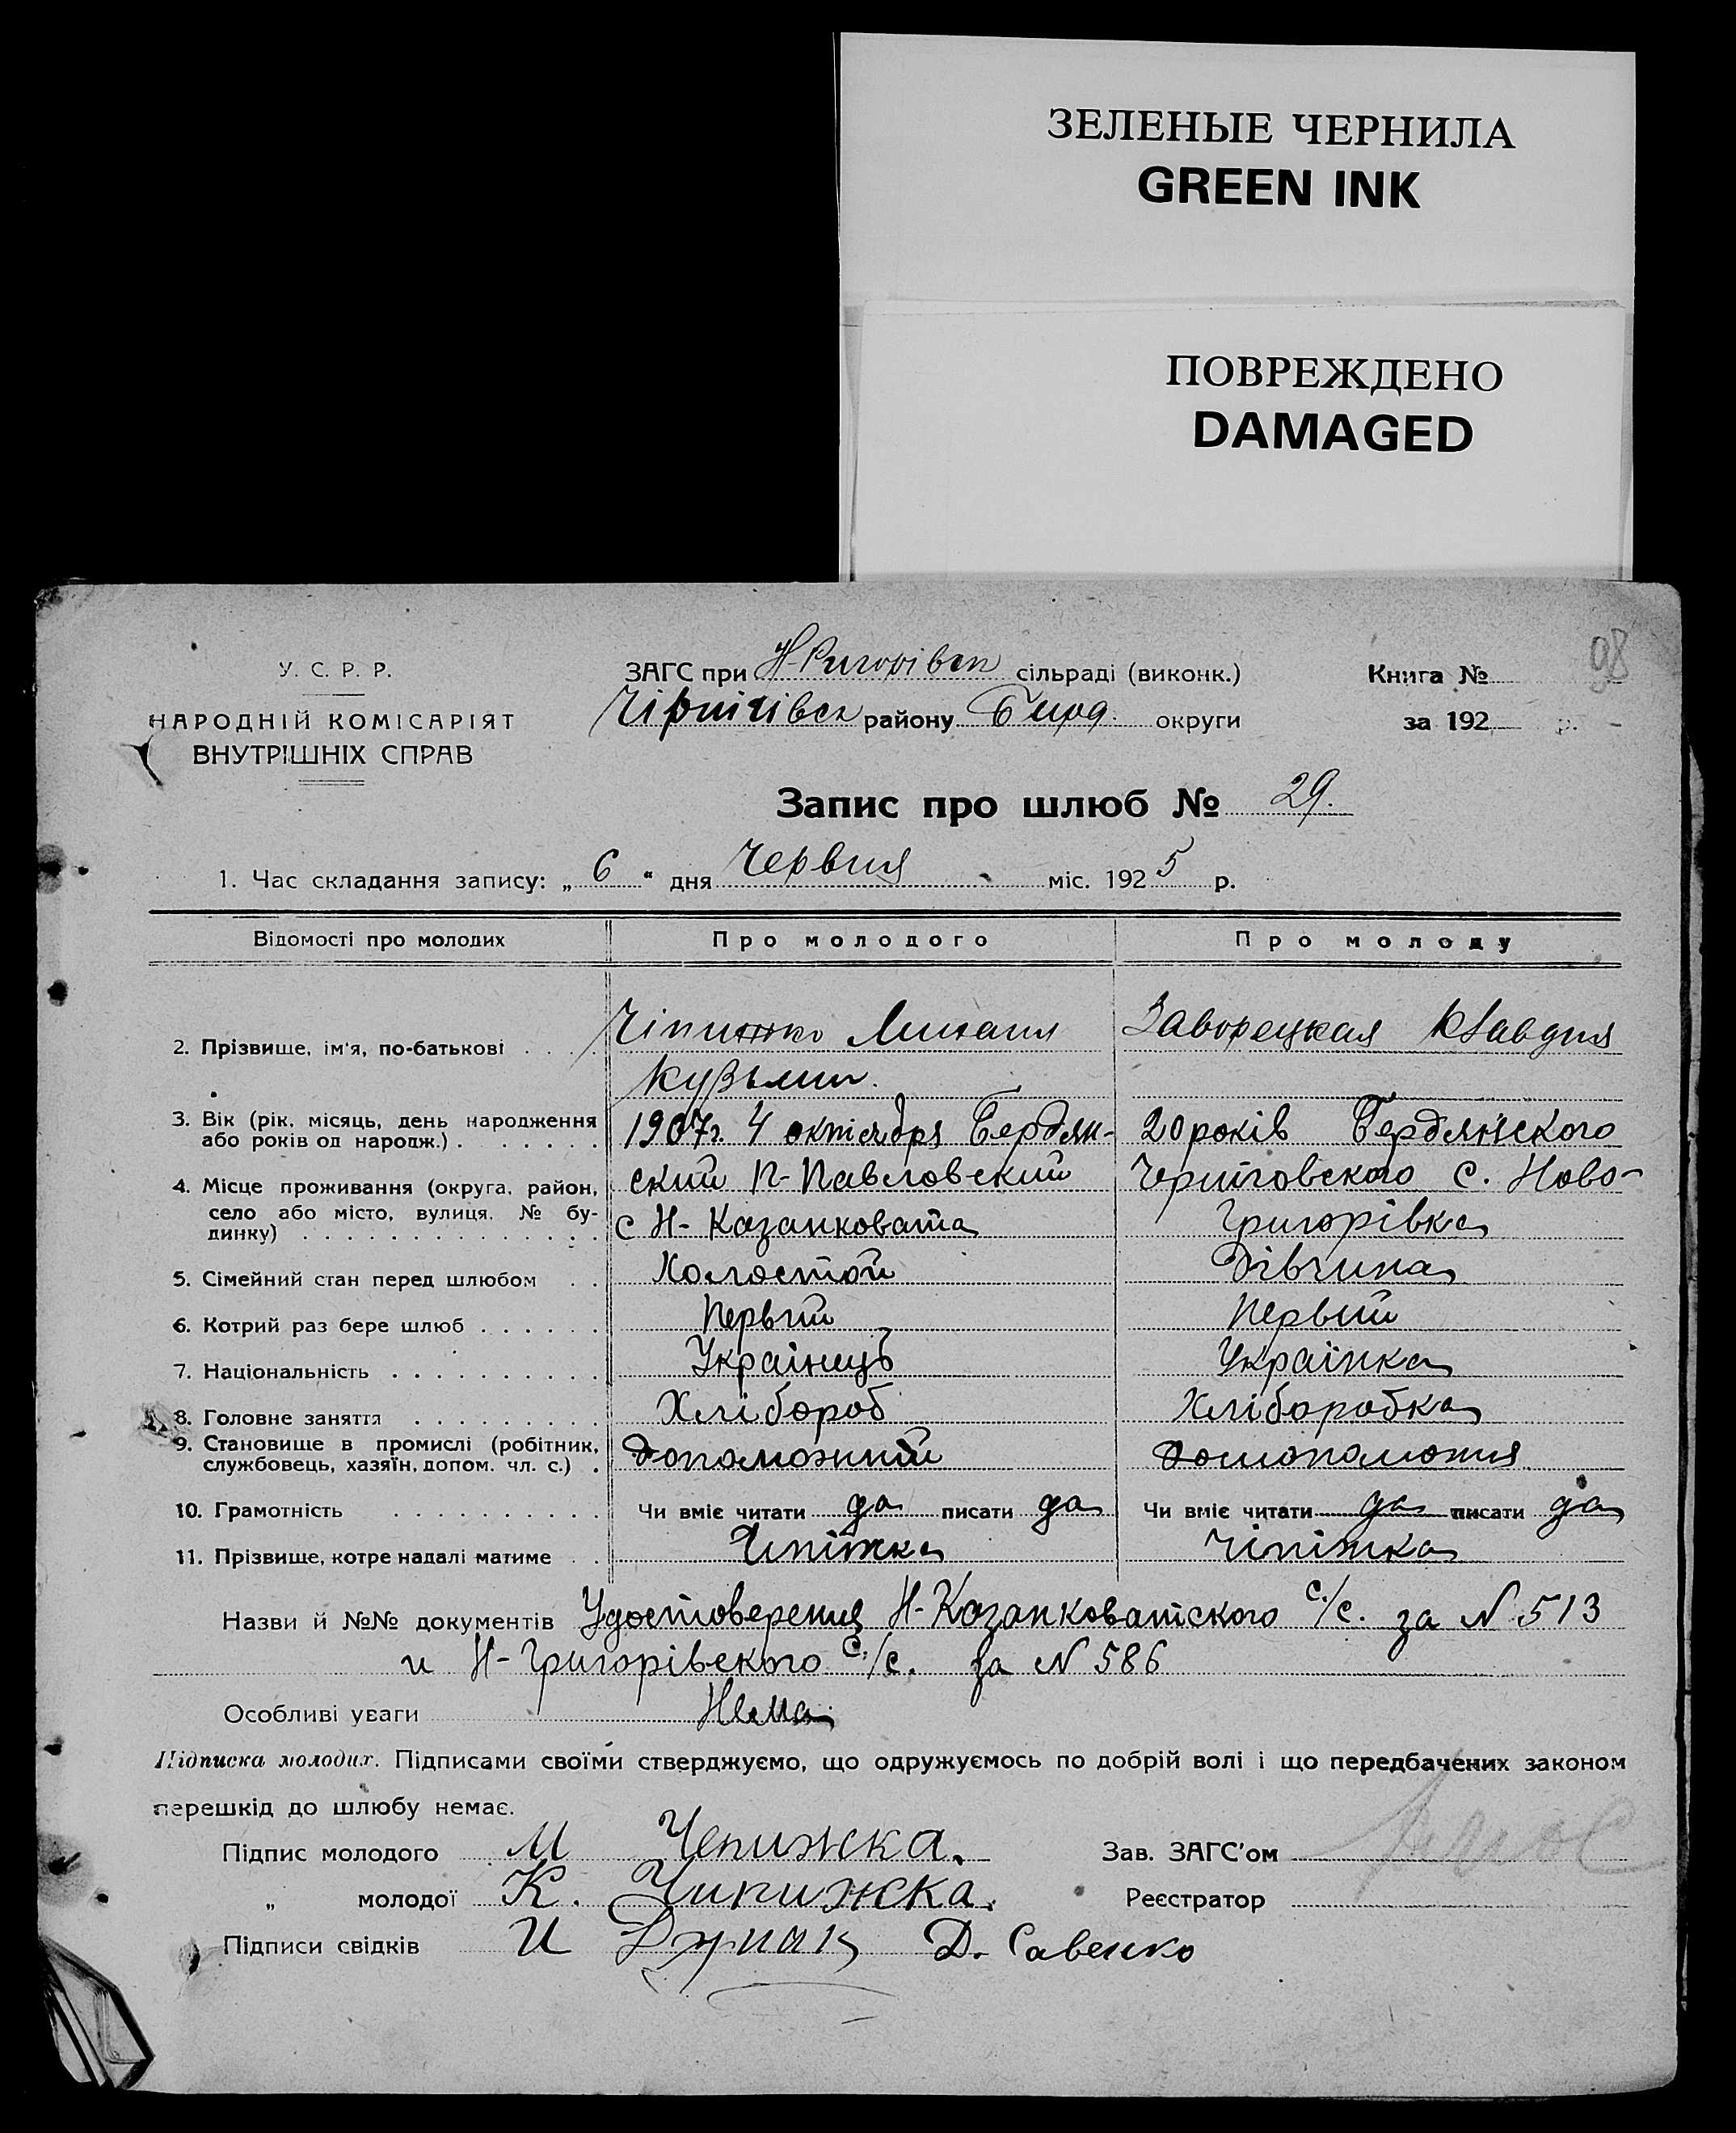 ЗЕЛЕНЫЕ ЧЕРНИЛА
GREEN INK
ПОВРЕЖДЕНО
DAMAGED
98
У. С. Р. Р.
НАРОДНІЙ КОМІСАРІЯТ
ВНУТРІШНІХ СПРАВ
ЗАГС при сільраді (виконк.)
району округи
Книга №
за 192 р.
Запис про шлюб № 29.
1. Час складання запису: „ 6 “ дня Червня міс. 1925 р.
Відомості про молодих Про молодого Про молоду
2. Прізвище, ім'я, по-батькові Михаил Заворецкая Клавдия
Кузьмич.
3. Вік (рік, місяць, день народження або років од народж.) 1907г. 4 октября Бердян- 20 років Бердянского
4. Місце проживання (округа, район, село або місто, вулиця, № будинку) ский П-Павловский Черниговского с. Ново-
с Н-Казанковата Григорівка
5. Сімейний стан перед шлюбом Холостой Дівчина
6. Котрий раз бере шлюб Первый Первий
7. Національність Українець Українка
8. Головне заняття Хлібороб Хліборобка
9. Становище в промислі (робітник, службовець, хазяїн, допом. чл. с.) Допоможний
10. Грамотність Чи вміє читати да писати да Чи вміє читати да писати да
11. Прізвище, котре надалі матиме Чипіжка Чіпіжка
Назви й №№ документів Удостоверения Н-Казанковатского с/с. за N 513
и Н-Григорівского с/с. за N 586
Особливі уваги Нема
Підписка молодих. Підписами своїми стверджуємо, що одружуємось по добрій волі і що передбачених законом
перешкід до шлюбу немає.
Підпис молодого М Чепижка. Зав. ЗАГС'ом
„ молодої К. Чипижка. Реєстратор
Підписи свідків И Д. Савенко